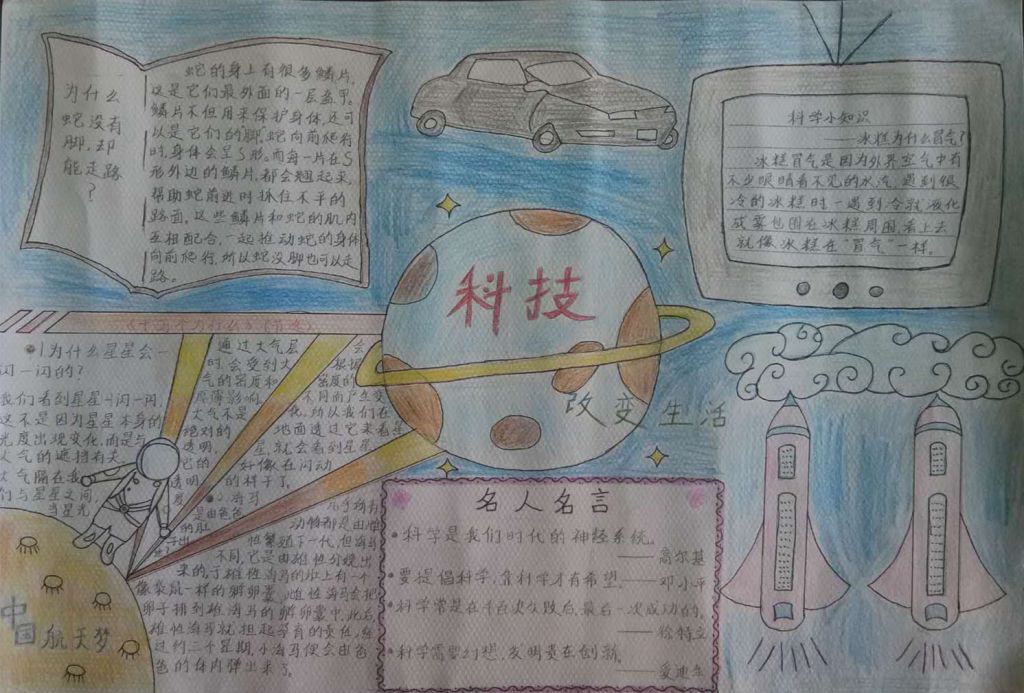 为什么
蛇没有
脚,却
能走路
?
蛇的身上有很多鳞片,
这是它们最外面的一层盔甲。
鳞片不但用来保护身体,还可
以是它们的脚,蛇向前爬行
时,身体会呈S形。而每一片在S
形外边的鳞片,都会翘起来,
帮助蛇前进时抓住不平的
路面。这些鳞片和蛇的肌肉
互相配合,一起推动蛇的身体
向前爬行,所以蛇没脚也可以走
路。
科学小知识
——冰糕为什么冒气?
冰糕冒气是因为外界空气中有
不少眼睛看不见的水汽,遇到很
冷的冰糕时一遇到冷就液化
成雾包围在冰糕周围,看上去
就像冰糕在“冒气”一样。
科技
改变生活
1.为什么星星会一
闪一闪的?
我们看到星星闪闪,
这不是因为星星本身的
光度出现变化,而是与
大气的遮挡有关。
大气隔在我
们与星星之间,
当星光
通过大气层 会
时,会受到大 根据
气的密度和 密度的
厚薄影响。 不同而产生变
大气不是 化,所以我们在
绝对的 地面透过它来看星
透明, 星,就会看到星星
它的 好像在闪动
透明 的样子了。
不同,它是由雌性分娩出
来的,于雄性海马的肚上有一个
像袋鼠一样的孵卵囊,雌性海马会把
卵子排到雄海马的孵卵囊中,此后,
雄性海马就担起孕育的责任,经
过约三个星期,小海马便会由色
色的体内弹出来了。
中国航天梦
名人名言
•科学是我们时代的神经系统。
——高尔基
•要提倡科学,靠科学才有希望。——邓小平
•科学常是在千百次失败后,最后一次成功的。
——徐特立
•科学需要幻想,发明贵在创新。
——爱迪生